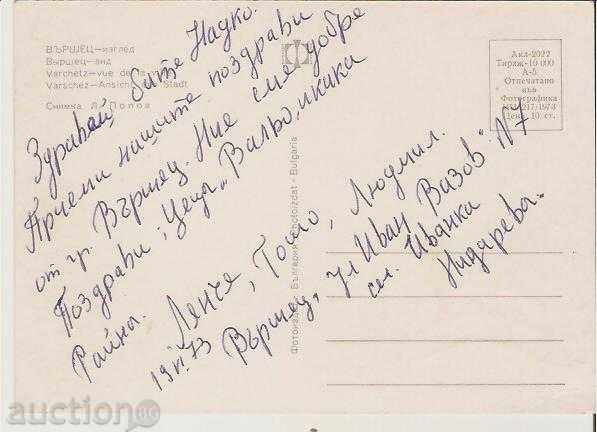 ВЪРШЕЦ—изглед
Вършец—вид
Varchetz—vue de la
Varschez—Ansicht der Stadt
Снимка Л. Попов
Фотоиздат България Photoizdat - Bulgaria
Акл-2027
Тираж-10 000
А-5
Отпечатано
във
Фотографика
217/1973
Цена 10 ст.
Здравей бате Надко.
Приеми нашите поздрави
от гр. Вършец. Ние сме добре
Поздрави: Цеца, Вальо, кака
Райна.
Ленче, Тошо, Людмил.
19 VI 73 Вършец, Ул „Иван Вазов" №7
сем. Иванка
Нидарева.
auction BG